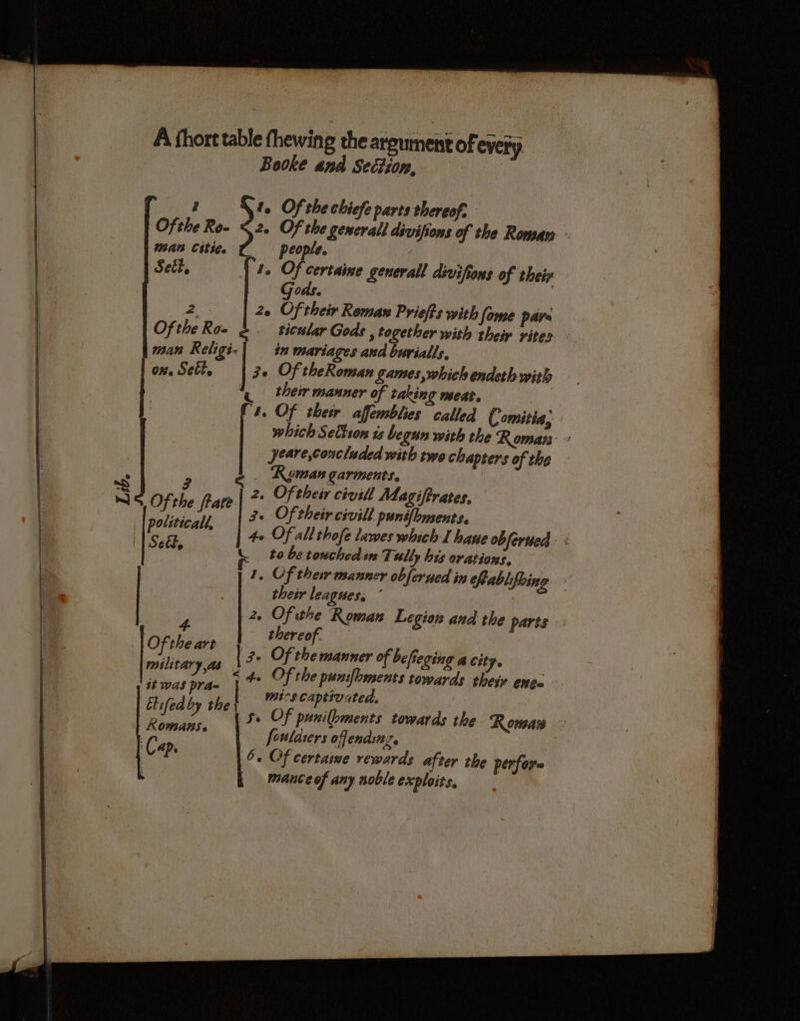 A ſhort table ſhewing the argument of every
Booke and Section,
Lib.
1
Of the Ro-
man citie.
Sect,
1. Of the chiefe parts thereof.
2. Of the generall diviſions of the Roman
people.
2
Of the Ro-
man Religi-
on. Sect,
1. Of certaine generall diviſions of their
Gods.
2. Of their Roman Prieſts with ſome par-
ticular Gods, together with their rites
in mariages and burialls.
3. Of the Roman games, which endeth with
their manner of taking meat.
3
Of the ſtate
politicall,
Sect,
1. Of their aſſemblies called Comitia,
which Section is begun with the Roman
yeare, concluded with two chapters of the
Roman garments.
2. Of their civill Magiſtrates.
3. Of their civill puniſhments.
4. Of all thoſe lawes which I haue obſerued
to be touched in Tully his orations.
4.
Of the art
military, as
it was pra-
ctiſed by the
Romans.
Cap.
1. Of their manner obſerued in eſtabliſhing
their leagues.
2. Of the Roman Legion and the parts
thereof.
3. Of the manner of beſieging a city.
4. Of the puniſhments towards their ene-
mies captivated.
5. Of puniſhments towards the Roman
ſouldiers offending.
6. Of certaine rewards after the perfor-
mance of any noble exploits.